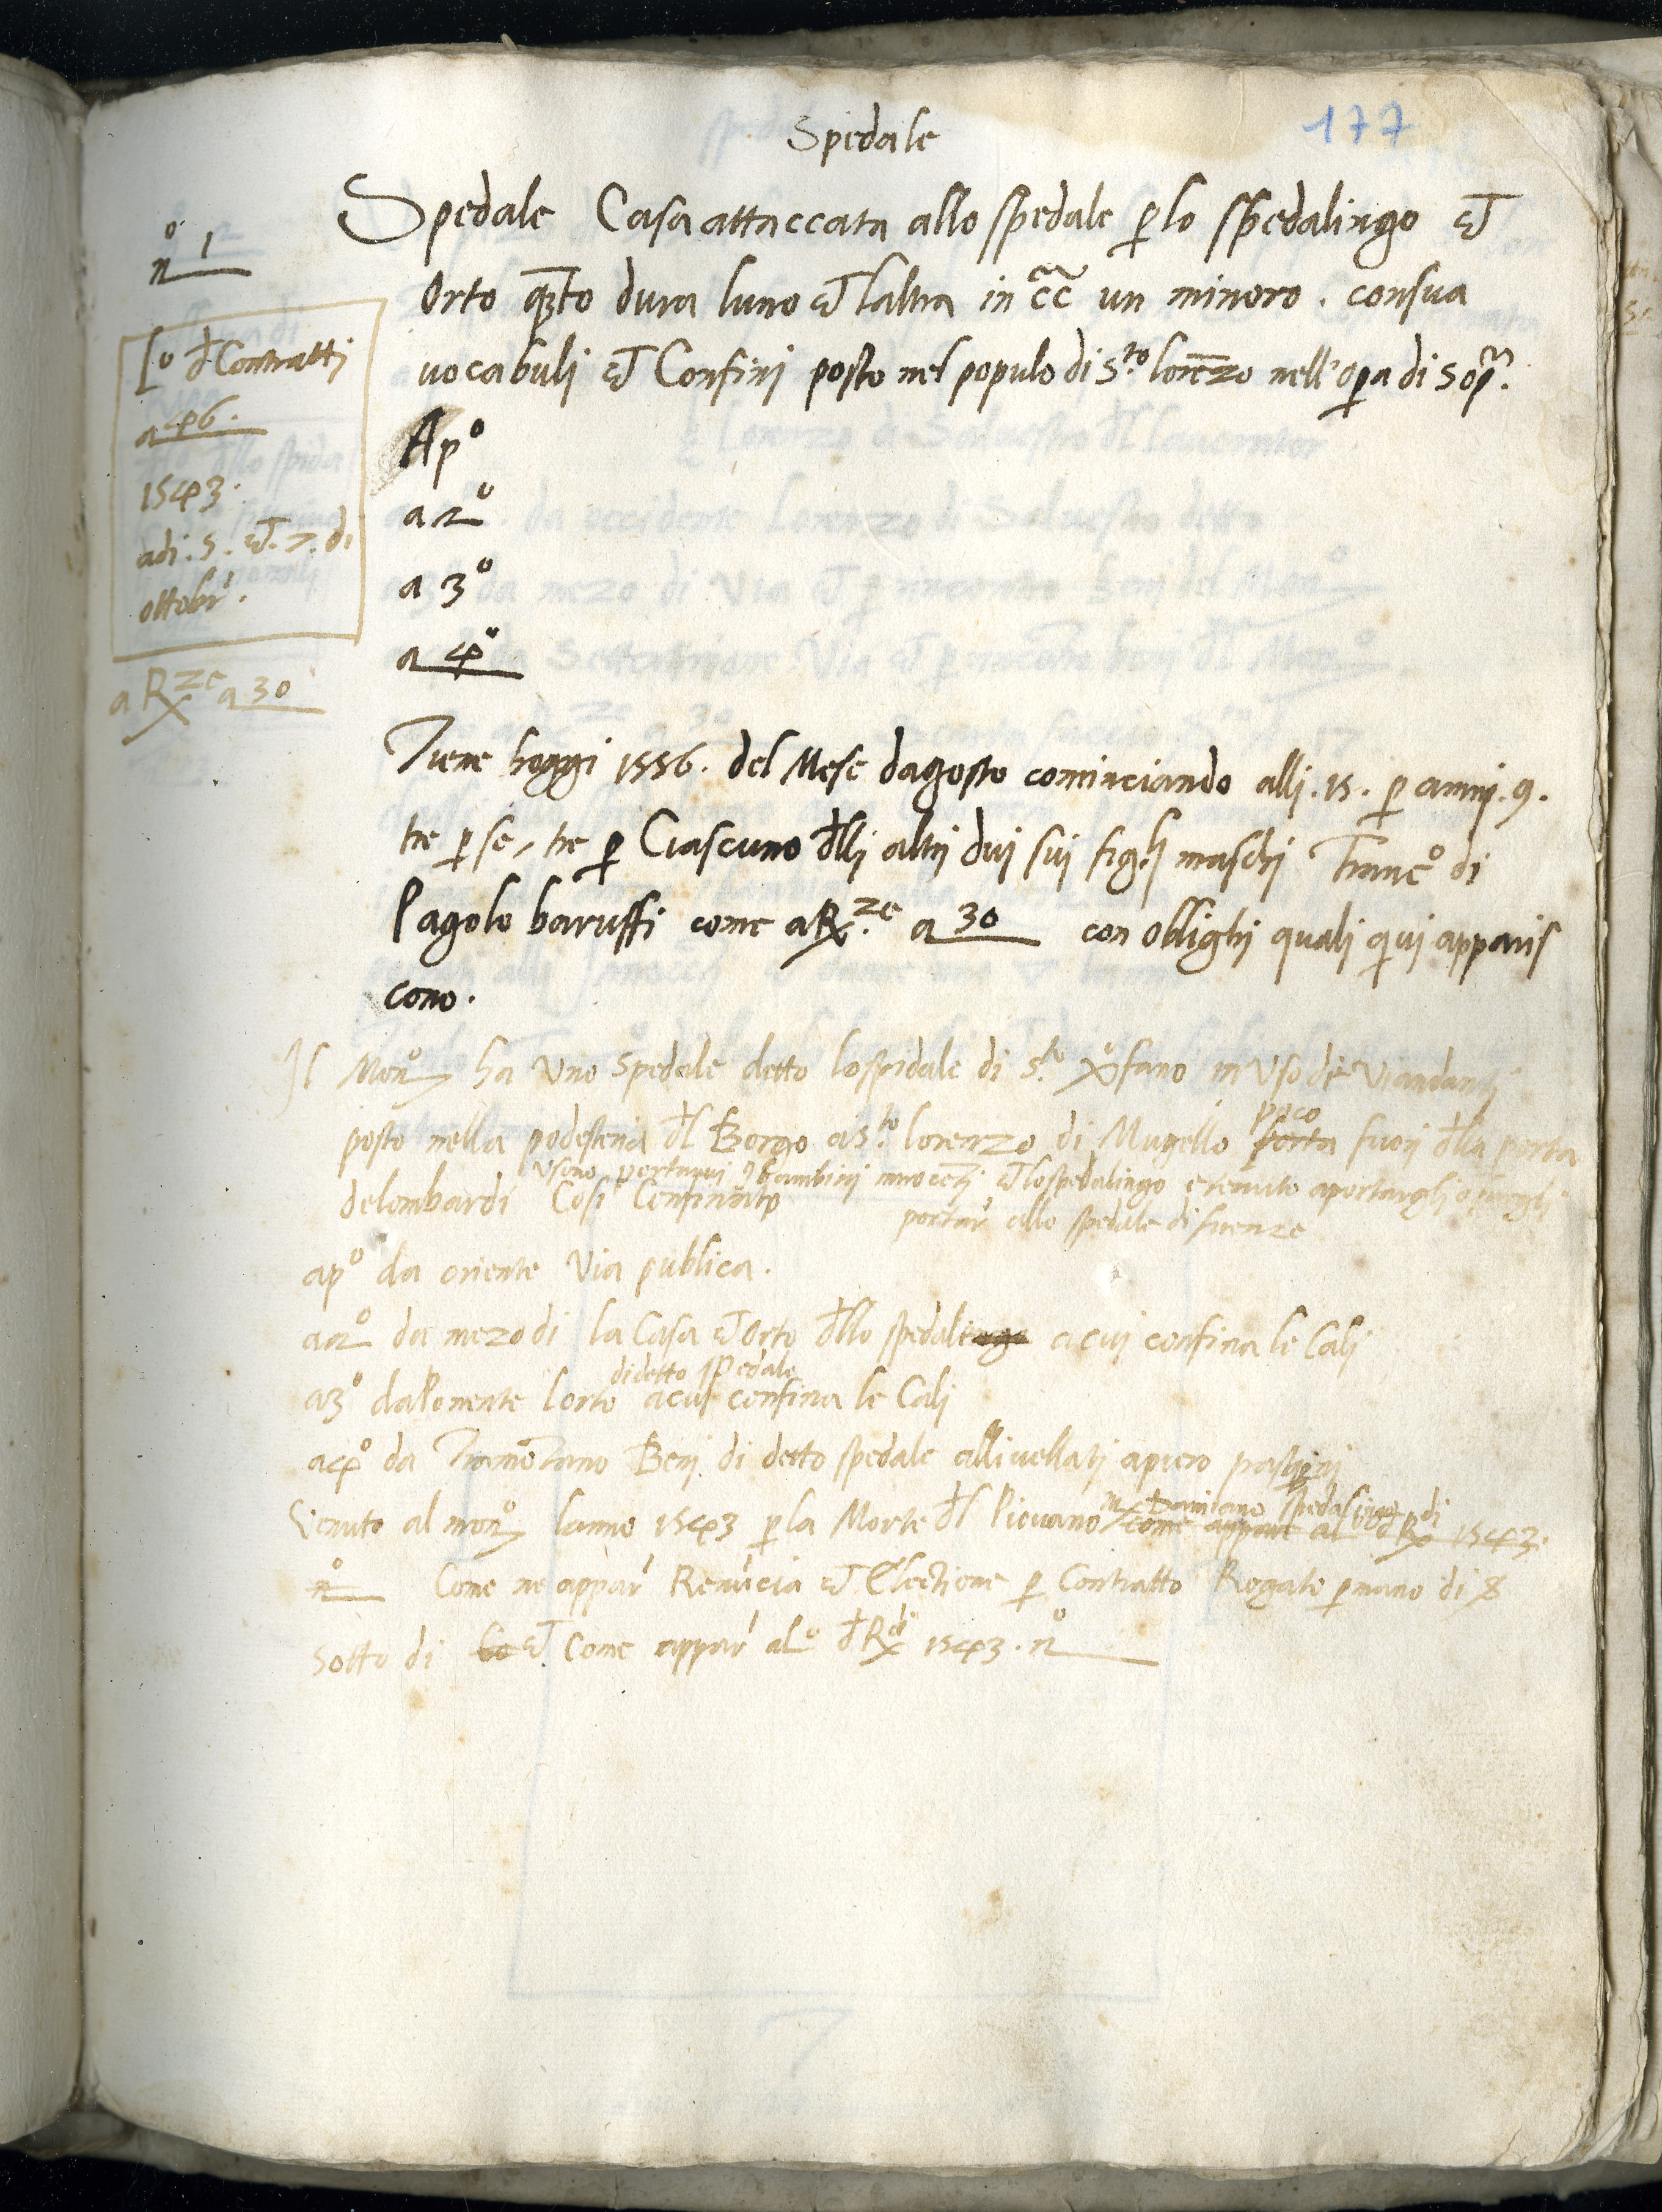 Spedale
177
nº 1
Spedale Casa attaccata allo spedale p lo spedalingo et
Orto qto dura luno et laltra in cc un minoro . consua
vocabuli et Confini posto nel populo di S.to lorenzo nell'opa di sop.
Lº d Contratti
a 46.
1543.
adi . 5 . et . 7 . di
ottobr.
a Rxze a 30
Apº
a 2º
a 3º
a 4º
Tiene hoggi 1556. del Mese dagosto cominciando alli . 15 . p anni . 9 .
tre p se, tre p Ciascuno dlli altri dui sui figli maschi Francº di
Pagolo baruffi come a Rx.ze a 30 con oblighi quali qui apparis
cono .
Il Monº ha Uno Spedale detto lospidale di s.to xºfano in Uso de Viandanti
posto nella podesteria dl Borgo a s.to lorenzo di Mugello porta poco fuori dlla porta
delombardi Cosi Confinato
usono portarvi bambini innoceti et lospedalingo e tenuto aportargli o fargli
portar allo spedale di firenze
apº da oriente Via publica .
a 2º da mezodi la Casa et Orto dllo spedalingo a cui confina le Cali
a 3º da Ponente lorto di detto spedale acui confina le Cali
a 4º da Tramotano Beni di detto spedale allivellati a piero
Venuto al monº lanno 1543 p la Morte dl Piovano Damiano spedalingo come appare al d Rxdi 1543.
nº Come ne appar Renucia et Electione p Contratto Rogato p mano di s
sotto di lo et Come appar alº d Rxdi 1543 . nº